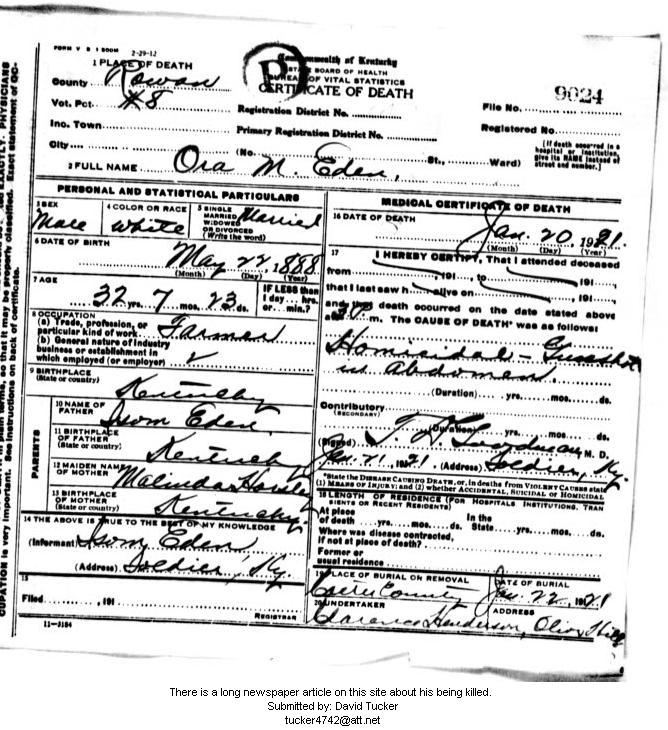 FORM V S 1 500M 2-29-12
1 PLACE OF DEATH
County Rowan
Vot. Pct. #8
Inc. Town
City
Commonwealth of Kentucky
STATE BOARD OF HEALTH
BUREAU OF VITAL STATISTICS
CERTIFICATE OF DEATH
Registration District No.
Primary Registration District No.
(No. St., Ward)
9024
File No.
Registered No.
(If death occurred in a hospital or institution, give its NAME instead of street and number.)
2 FULL NAME Ora M. Eden,
PERSONAL AND STATISTICAL PARTICULARS
3 SEX Male
4 COLOR OR RACE White
5 SINGLE MARRIED WIDOWED OR DIVORCED (Write the word) Married
6 DATE OF BIRTH May 22, 1888
(Month) (Day) (Year)
7 AGE 32 yrs. 7 mos. 23 ds.
IF LESS than 1 day hrs. or min.?
8 OCCUPATION
(a) Trade, profession, or
particular kind of work Farmer
(b) General nature of industry
business or establishment in
which employed (or employer)
9 BIRTHPLACE
(State or country) Kentucky
PARENTS
10 NAME OF FATHER Isom Eden
11 BIRTHPLACE OF FATHER (State or country) Kentucky
12 MAIDEN NAME OF MOTHER Malinda
13 BIRTHPLACE OF MOTHER (State or country) Kentucky
14 THE ABOVE IS TRUE TO THE BEST OF MY KNOWLEDGE
(Informant) Isom Eden
(Address) Soldier, Ky.
15
Filed , 191
REGISTRAR
11-3184
MEDICAL CERTIFICATE OF DEATH
16 DATE OF DEATH Jan. 20, 1921.
(Month) (Day) (Year)
17 I HEREBY CERTIFY, That I attended deceased
from , 191 , to , 191 ,
that I last saw h alive on , 191 ,
and that death occurred on the date stated above
at m. The CAUSE OF DEATH* was as follows:
Homicidal - Gunshot
in Abdomen.
(Duration) yrs. mos. ds.
Contributory
(SECONDARY)
(Duration) yrs. mos. ds.
(Signed) M. D.
Jan. 21, 1921. (Address) Soldier, Ky.
*State the DISEASE CAUSING DEATH, or, in deaths from VIOLENT CAUSES state
(1) MEANS OF INJURY; and (2) whether ACCIDENTAL, SUICIDAL or HOMICIDAL
18 LENGTH OF RESIDENCE (FOR HOSPITALS INSTITUTIONS, TRANSIENTS OR RECENT RESIDENTS)
At place of death yrs. mos. ds. In the State yrs. mos. ds.
Where was disease contracted,
if not at place of death?
Former or
usual residence
19 PLACE OF BURIAL OR REMOVAL Carter County
DATE OF BURIAL Jan. 22, 1921
20 UNDERTAKER Clarence Henderson,
ADDRESS Olive Hill
There is a long newspaper article on this site about his being killed.
Submitted by: David Tucker
tucker4742@att.net